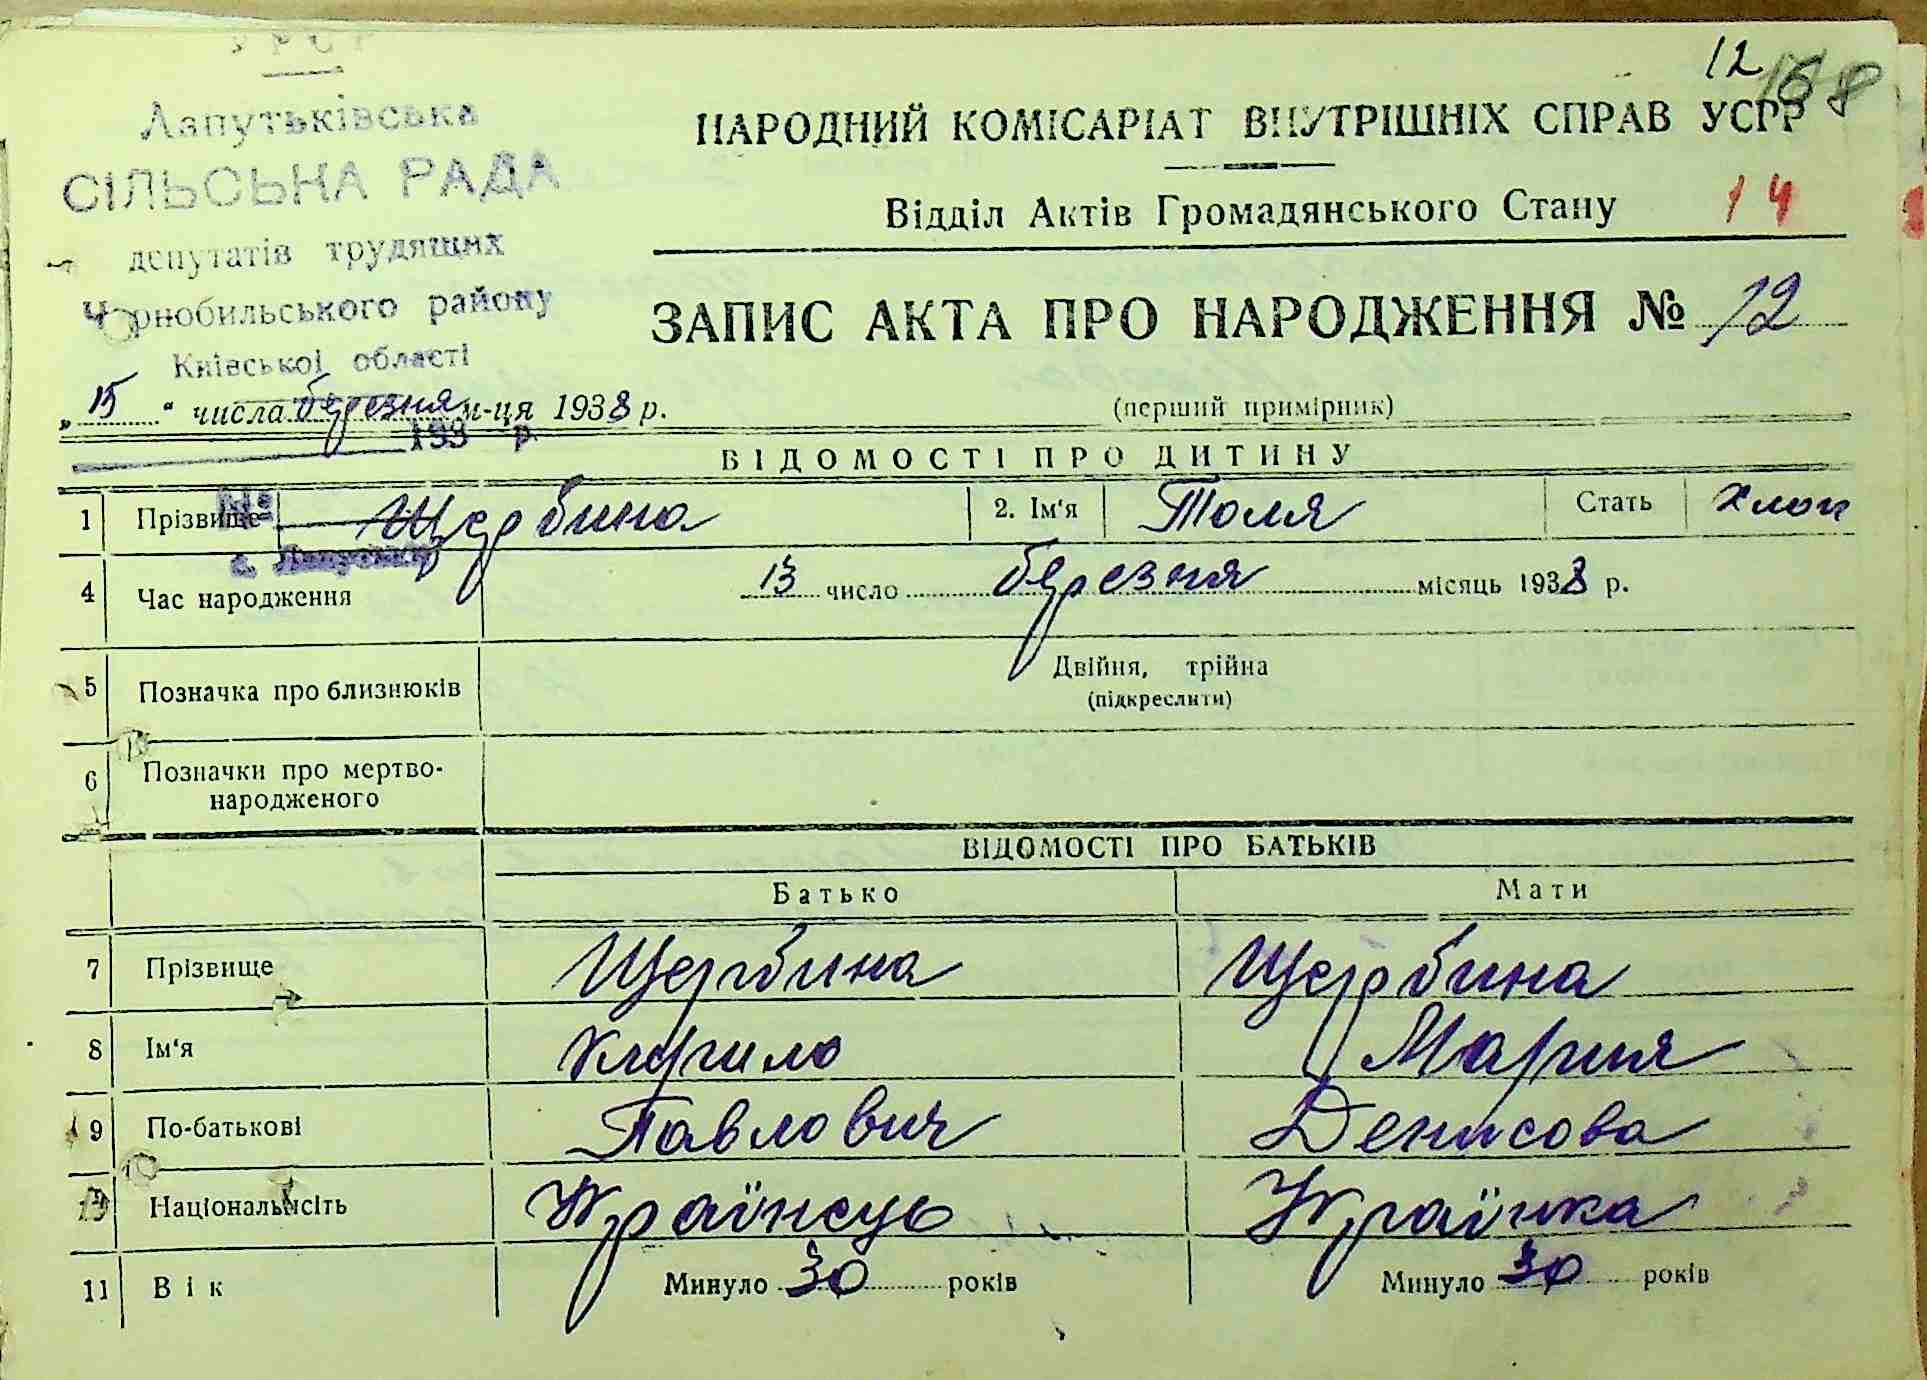 УРСР
Лапутьківська
СІЛЬСЬКА РАДА
депутатів трудящих
Чорнобильського району
Київської області
193 р.
№
с. Лапутьки
12
168
НАРОДНИЙ КОМІСАРІАТ ВНУТРІШНІХ СПРАВ УСРР
Відділ Актів Громадянського Стану 14
ЗАПИС АКТА ПРО НАРОДЖЕННЯ № 12
„15“ числа березня м-ця 1938 р. (перший примірник)
ВІДОМОСТІ ПРО ДИТИНУ
1 Прізвище Щербина 2. Ім'я Толя Стать Хлоп
4 Час народження 13 число березня місяць 1938 р.
5 Позначка про близнюків Двійня, трійна
(підкреслити)
6 Позначки про мертво-
народженого
ВІДОМОСТІ ПРО БАТЬКІВ
Батько Мати
7 Прізвище Щербина Щербина
8 Ім'я Кирило Мария
9 По-батькові Павлович Денисова
10 Національність Українець Українка
11 Вік Минуло 30 років Минуло 30 років